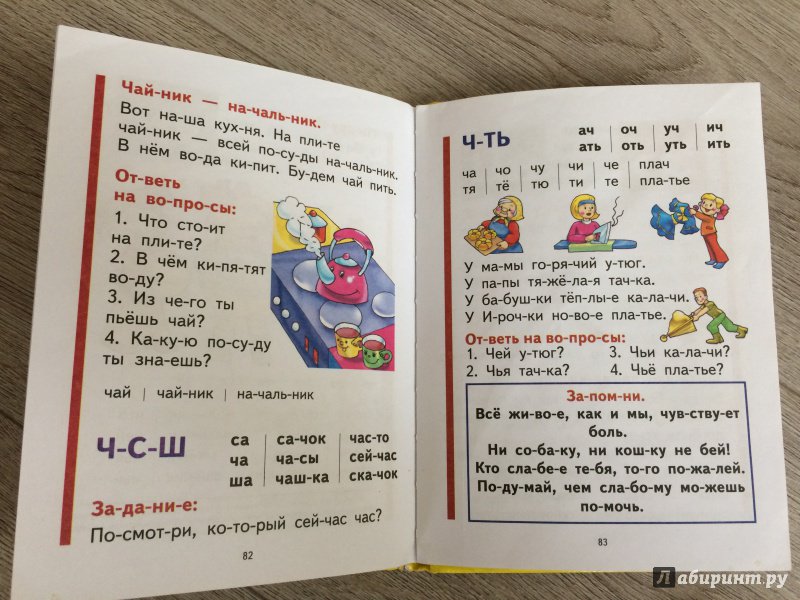 Чай-ник — на-чаль-ник.
Вот на-ша кух-ня. На пли-те
чай-ник — всей по-су-ды на-чаль-ник.
В нём во-да ки-пит. Бу-дем чай пить.
От-веть
на во-про-сы:
1. Что сто-ит
на пли-те?
2. В чём ки-пя-тят
во-ду?
3. Из че-го ты
пьёшь чай?
4. Ка-ку-ю по-су-ду
ты зна-ешь?
чай | чай-ник | на-чаль-ник
Ч-С-Ш
са | са-чок | час-то
ча | ча-сы | сей-час
ша | чаш-ка | ска-чок
За-да-ни-е:
По-смот-ри, ко-то-рый сей-час час?
82
Ч-ТЬ
ач | оч | уч | ич
ать | оть | уть | ить
ча | чо | чу | чи | че | плач
тя | тё | тю | ти | те | пла-тье
У ма-мы го-ря-чий у-тюг.
У па-пы тя-жё-ла-я тач-ка.
У ба-буш-ки тёп-лы-е ка-ла-чи.
У И-роч-ки но-во-е пла-тье.
От-веть на во-про-сы:
1. Чей у-тюг? 3. Чьи ка-ла-чи?
2. Чья тач-ка? 4. Чьё пла-тье?
За-пом-ни.
Всё жи-во-е, как и мы, чув-ству-ет
боль.
Ни со-ба-ку, ни кош-ку не бей!
Кто сла-бе-е те-бя, то-го по-жа-лей.
По-ду-май, чем сла-бо-му мо-жешь
по-мочь.
83
Лабиринт.ру